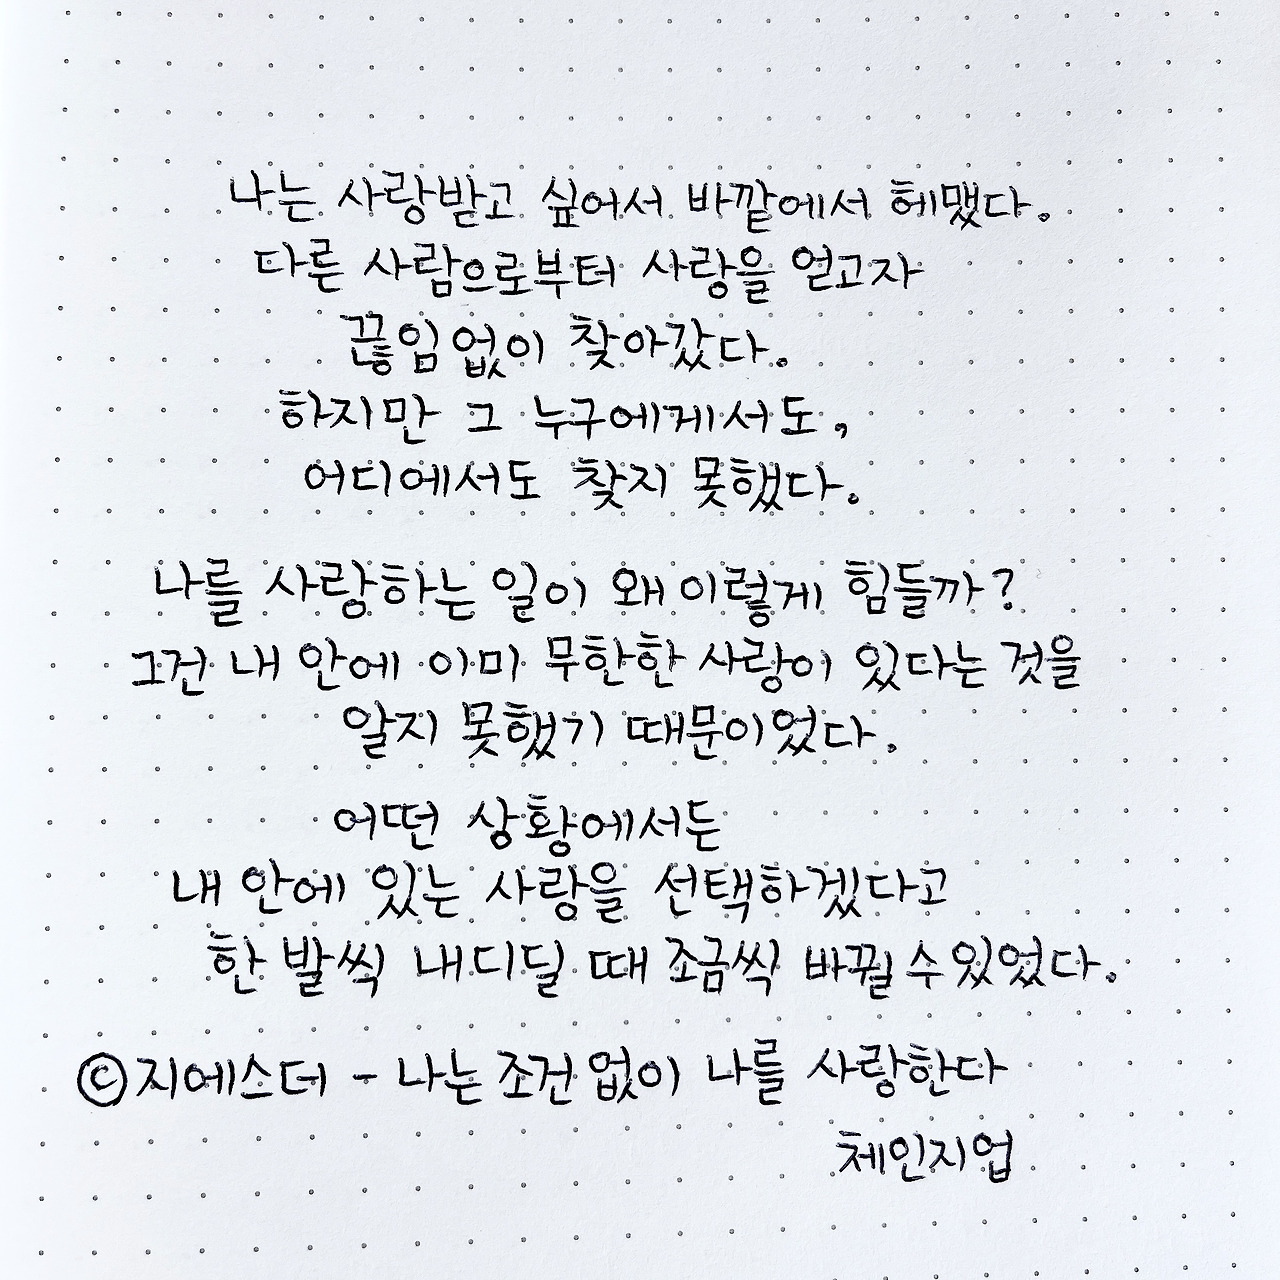 나는 사랑받고 싶어서 바깥에서 헤맸다.
다른 사람으로부터 사랑을 얻고자
끊임없이 찾아갔다.
하지만 그 누구에게서도,
어디에서도 찾지 못했다.
나를 사랑하는 일이 왜 이렇게 힘들까?
그건 내 안에 이미 무한한 사랑이 있다는 것을
알지 못했기 때문이었다.
어떤 상황에서든
내 안에 있는 사랑을 선택하겠다고
한 발씩 내디딜 때 조금씩 바뀔 수 있었다.
ⓒ지에스더 - 나는 조건없이 나를 사랑한다
체인지업